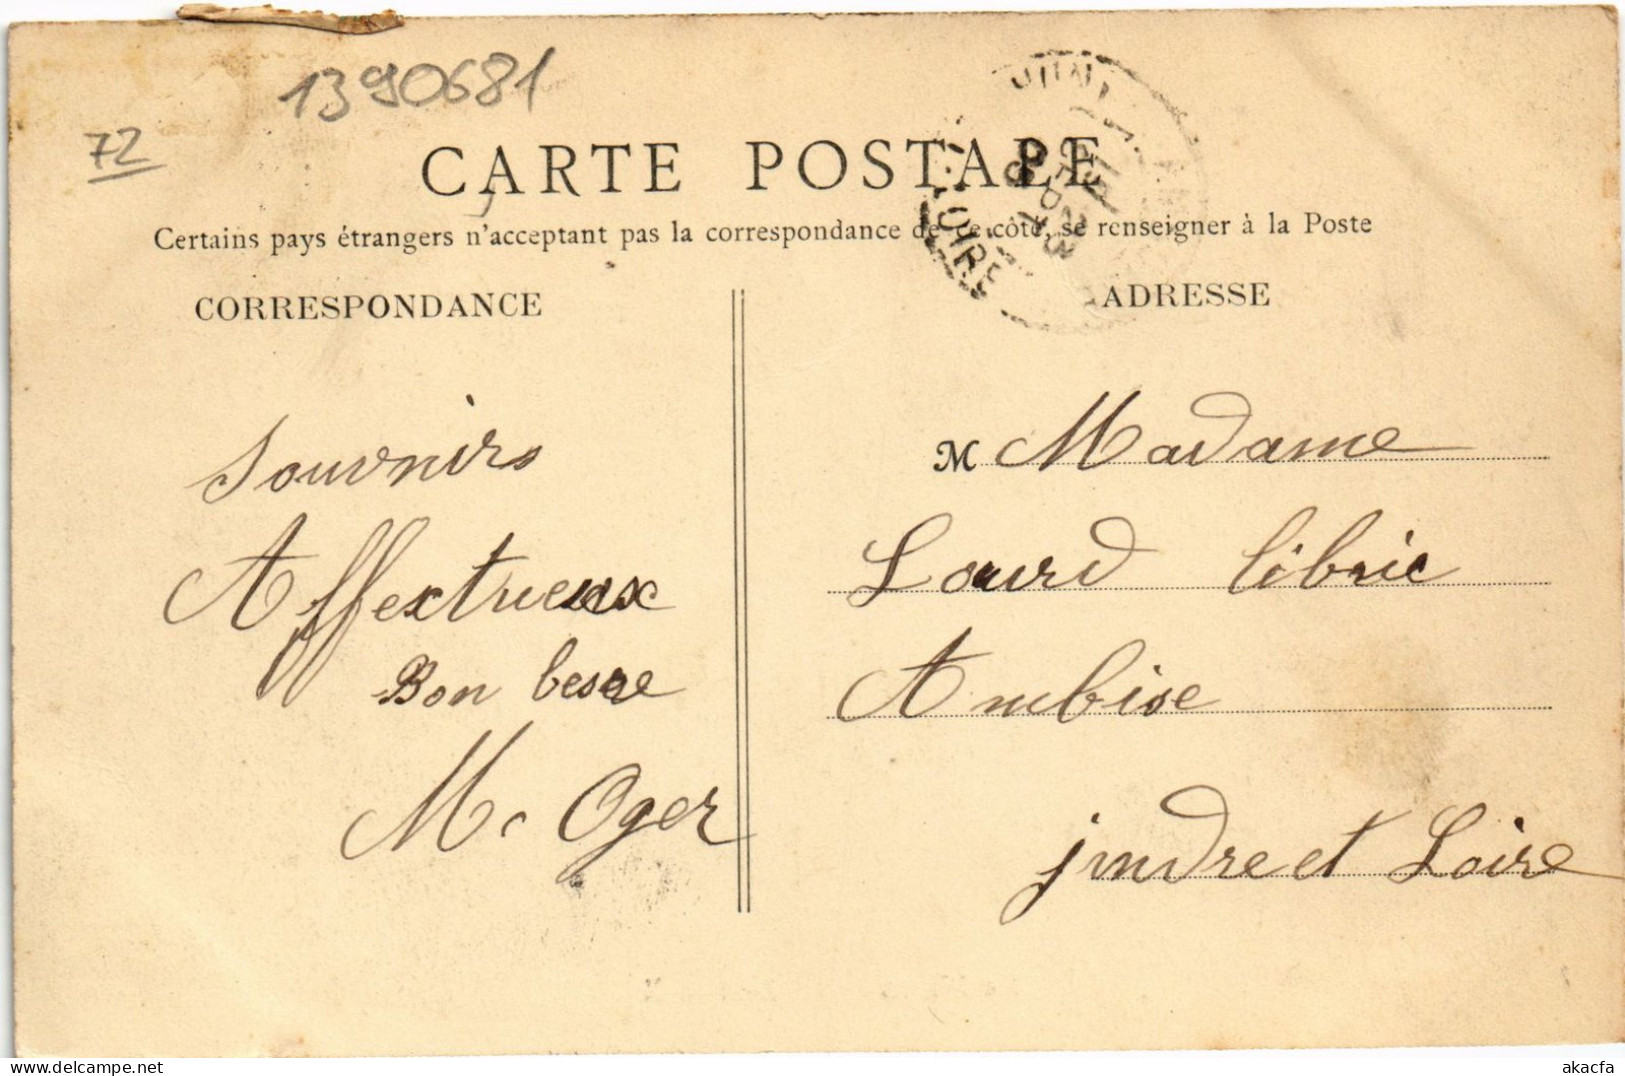 1390681
72
CARTE POSTALE
Certains pays étrangers n'acceptant pas la correspondance de ce côté, se renseigner à la Poste
CORRESPONDANCE
ADRESSE
Souvnirs
Affextueux
Bon besre
M. Oger
M Madame
Lourd libric
Ambise
jndre et Loire
LOIRE
delcampe.net
akacfa